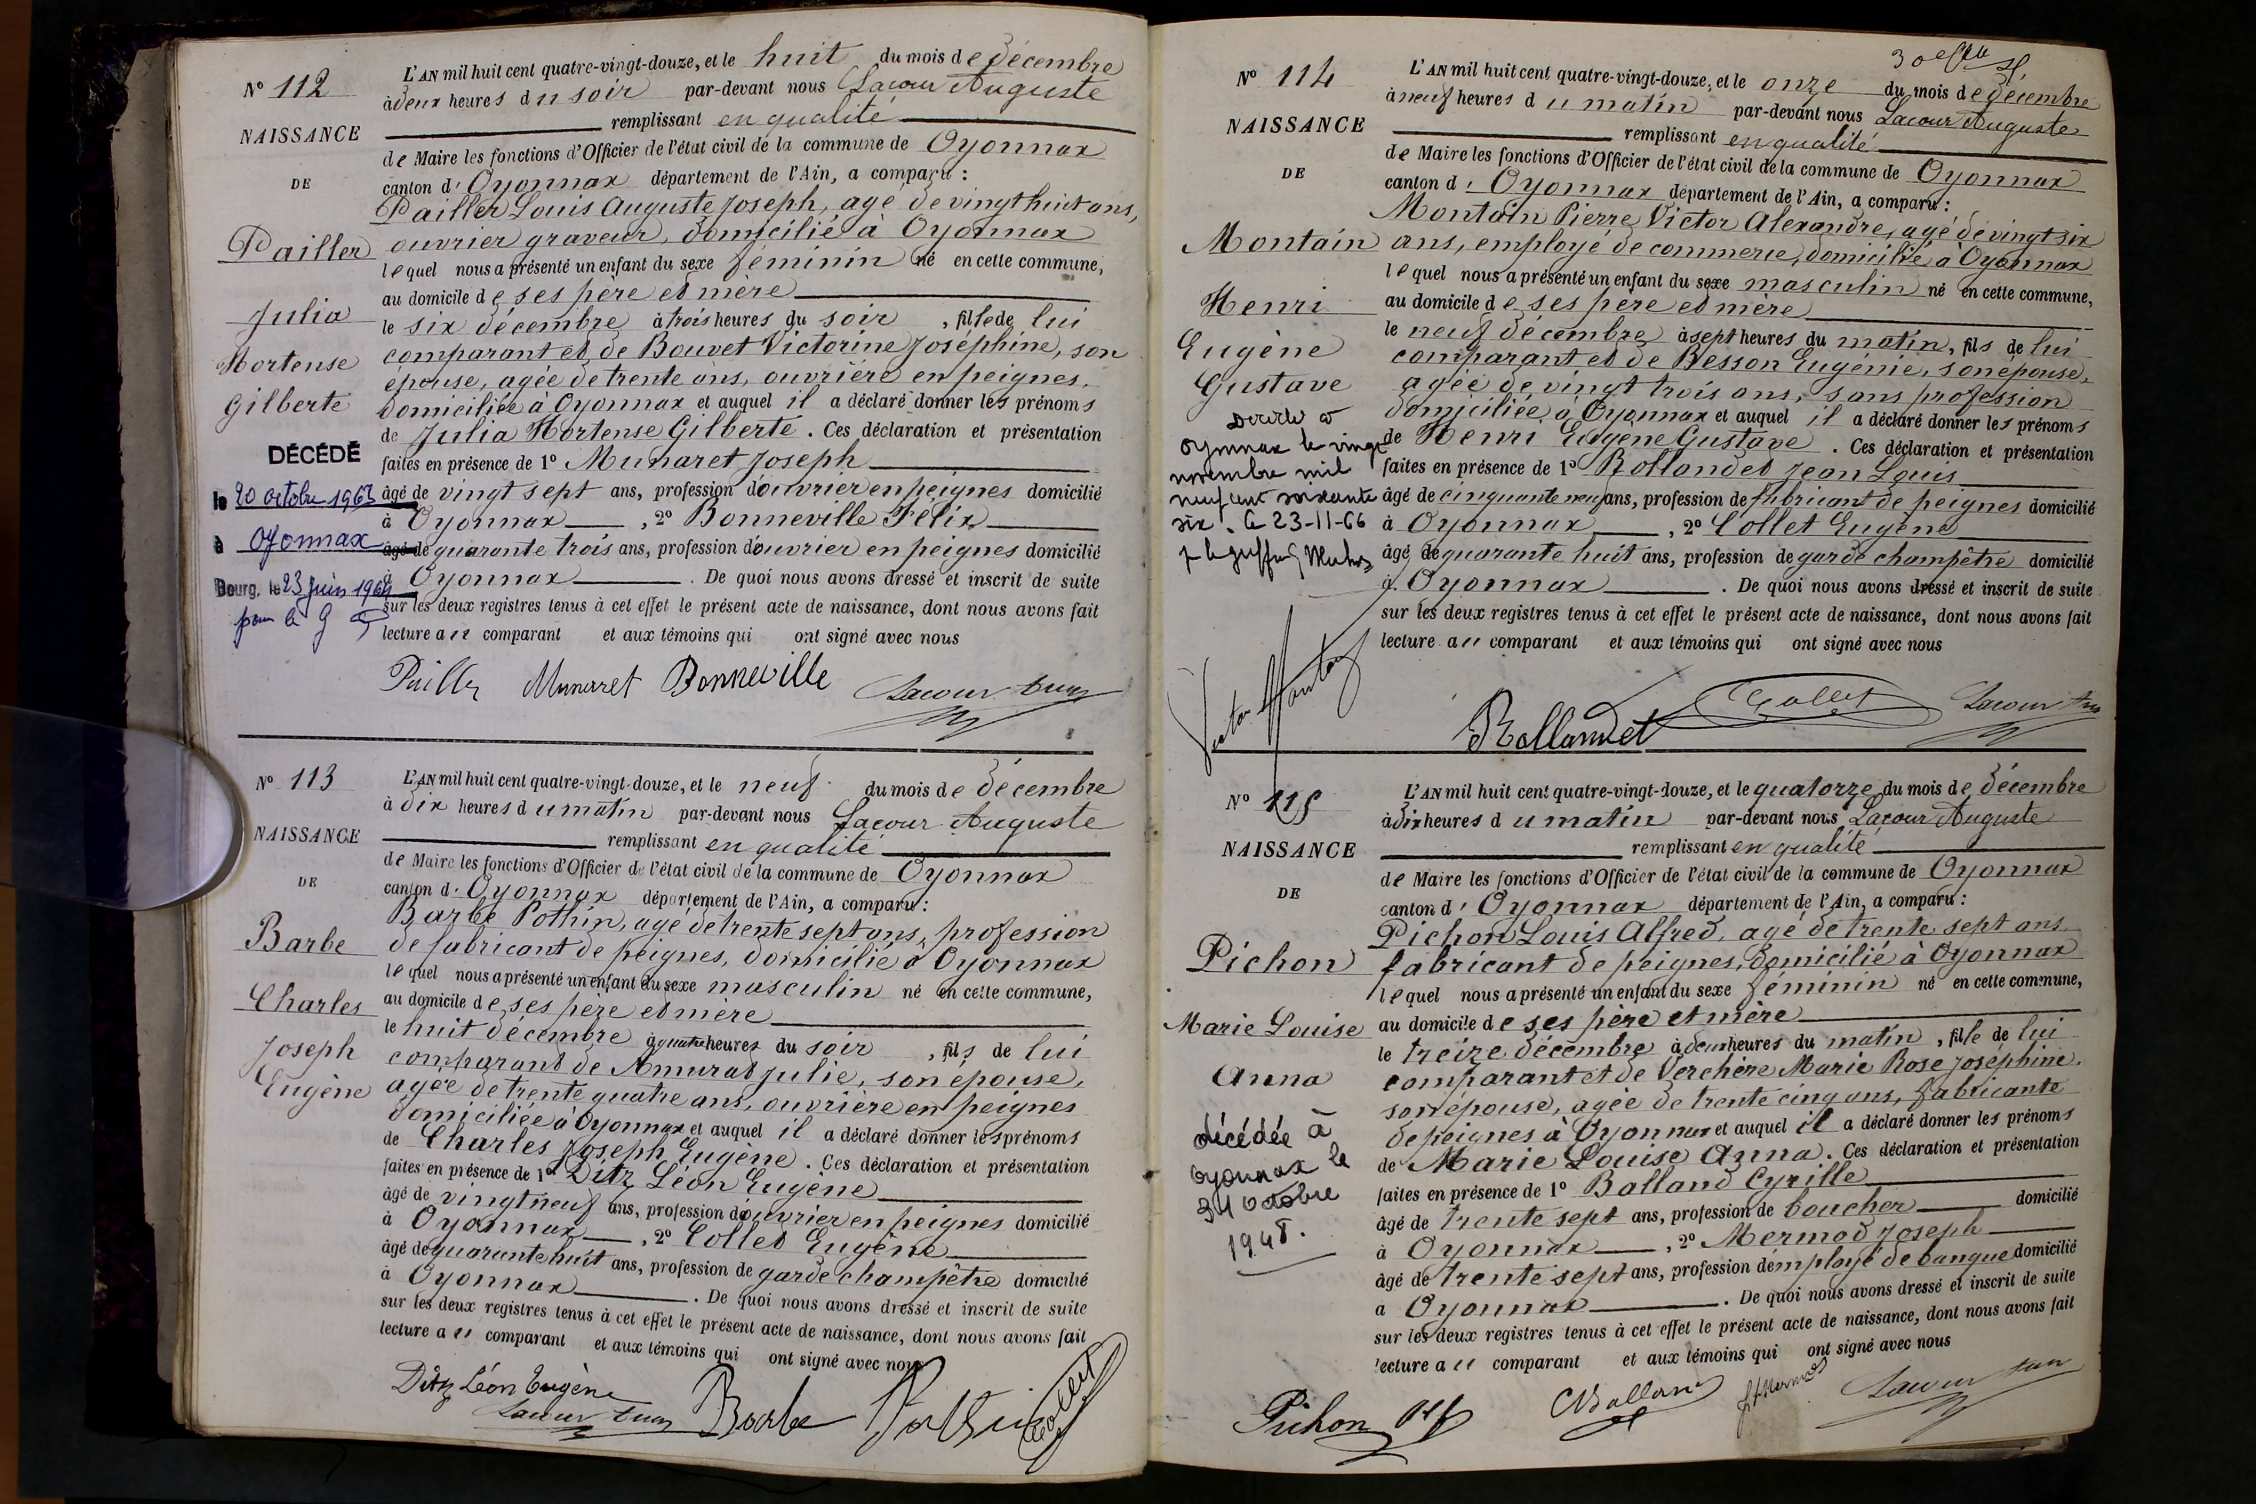 N° 112
NAISSANCE
DE
Pailler
Julia
Hortense
Gilberte
DÉCÉDÉ
le 20 octobre 1963
à Oyonnax
Bourg, le 23 Juin 1964
pour le G
L'AN mil huit cent quatre-vingt-douze, et le huit du mois de décembre
à deux heures du soir par-devant nous Lacour Auguste
remplissant en qualité
de Maire les fonctions d'Officier de l'état civil de la commune de Oyonnax
canton d'Oyonnax département de l'Ain, a comparu :
Pailler Louis Auguste Joseph, agé de vingt huit ans,
ouvrier graveur, domicilié à Oyonnax
lequel nous a présenté un enfant du sexe féminin né en cette commune,
au domicile de ses père et mère
le six décembre à trois heures du soir, fille de lui
comparant et de Bouvet Victorine Joséphine, son
épouse, agée de trente ans, ouvrière en peignes.
domiciliée à Oyonnax et auquel il a déclaré donner les prénoms
de Julia Hortense Gilberte. Ces déclaration et présentation
faites en présence de 1° Munaret Joseph
âgé de vingt sept ans, profession d'ouvrier en peignes domicilié
à Oyonnax, 2° Bonneville Félix
âgé de quarante trois ans, profession d'ouvrier en peignes domicilié
à Oyonnax. De quoi nous avons dressé et inscrit de suite
sur les deux registres tenus à cet effet le présent acte de naissance, dont nous avons fait
lecture au comparant et aux témoins qui ont signé avec nous
Pailler Munaret Bonneville Lacour
N° 113
NAISSANCE
DE
Barbe
Charles
Joseph
Eugène
L'AN mil huit cent quatre-vingt-douze, et le neuf du mois de décembre
à dix heures du matin par-devant nous Lacour Auguste
remplissant en qualité
de Maire les fonctions d'Officier de l'état civil de la commune de Oyonnax
canton d'Oyonnax département de l'Ain, a comparu :
Barbe Pothin, agé de trente sept ans, profession
de fabricant de peignes, domicilié à Oyonnax
lequel nous a présenté un enfant du sexe masculin né en cette commune,
au domicile de ses père et mère
le huit décembre à quatre heures du soir, fils de lui
comparant de Amurat Julie, son épouse,
agée de trente quatre ans, ouvrière en peignes
domiciliée à Oyonnax et auquel il a déclaré donner les prénoms
de Charles Joseph Eugène. Ces déclaration et présentation
faites en présence de 1° Ditz Léon Eugène
âgé de vingt neuf ans, profession d'ouvrier en peignes domicilié
à Oyonnax, 2° Collet Eugène
âgé de quarante huit ans, profession de garde champêtre domicilié
à Oyonnax. De quoi nous avons dressé et inscrit de suite
sur les deux registres tenus à cet effet le présent acte de naissance, dont nous avons fait
lecture au comparant et aux témoins qui ont signé avec nous
Ditz Léon Eugène
Lacour Barbe Pothin Collet
N° 114
NAISSANCE
DE
Montain
Henri
Eugène
Gustave
Décédé à
Oyonnax le vingt
novembre mil
neuf cent soixante
six. Le 23-11-66
L'AN mil huit cent quatre-vingt-douze, et le onze du mois de décembre
à neuf heures du matin par-devant nous Lacour Auguste
remplissant en qualité
de Maire les fonctions d'Officier de l'état civil de la commune de Oyonnax
canton d'Oyonnax département de l'Ain, a comparu :
Montain Pierre Victor Alexandre, agé de vingt six
ans, employé de commerce, domicilié à Oyonnax
lequel nous a présenté un enfant du sexe masculin né en cette commune,
au domicile de ses père et mère
le neuf décembre à sept heures du matin, fils de lui
comparant et de Besson Eugénie, son épouse,
agée de vingt trois ans, sans profession
domiciliée à Oyonnax et auquel il a déclaré donner les prénoms
de Henri Eugène Gustave. Ces déclaration et présentation
faites en présence de 1° Rollandet Jean Louis
âgé de cinquante neuf ans, profession de fabricant de peignes domicilié
à Oyonnax, 2° Collet Eugène
âgé de quarante huit ans, profession de garde champêtre domicilié
à Oyonnax. De quoi nous avons dressé et inscrit de suite
sur les deux registres tenus à cet effet le présent acte de naissance, dont nous avons fait
lecture au comparant et aux témoins qui ont signé avec nous
Victor Montain Rollandet Collet Lacour
N° 115
NAISSANCE
DE
Pichon
Marie Louise
Anna
décédée à
Oyonnax le
31 octobre
L'AN mil huit cent quatre-vingt-douze, et le quatorze du mois de décembre
à dix heures du matin par-devant nous Lacour Auguste
remplissant en qualité
de Maire les fonctions d'Officier de l'état civil de la commune de Oyonnax
canton d'Oyonnax département de l'Ain, a comparu :
Pichon Louis Alfred, agé de trente sept ans
fabricant de peignes, domicilié à Oyonnax
lequel nous a présenté un enfant du sexe féminin né en cette commune,
au domicile de ses père et mère
le treize décembre à deux heures du matin, fille de lui
comparant et de Verchère Marie Rose Joséphine.
son épouse, agée de trente cinq ans, fabricante
de peignes à Oyonnax et auquel il a déclaré donner les prénoms
de Marie Louise Anna. Ces déclaration et présentation
faites en présence de 1° Balland Cyrille
âgé de trente sept ans, profession de boucher domicilié
à Oyonnax, 2° Mermod Joseph
âgé de trente sept ans, profession d'employé de banque domicilié
à Oyonnax. De quoi nous avons dressé et inscrit de suite
sur les deux registres tenus à cet effet le présent acte de naissance, dont nous avons fait
lecture au comparant et aux témoins qui ont signé avec nous
Pichon CBalland Lacour